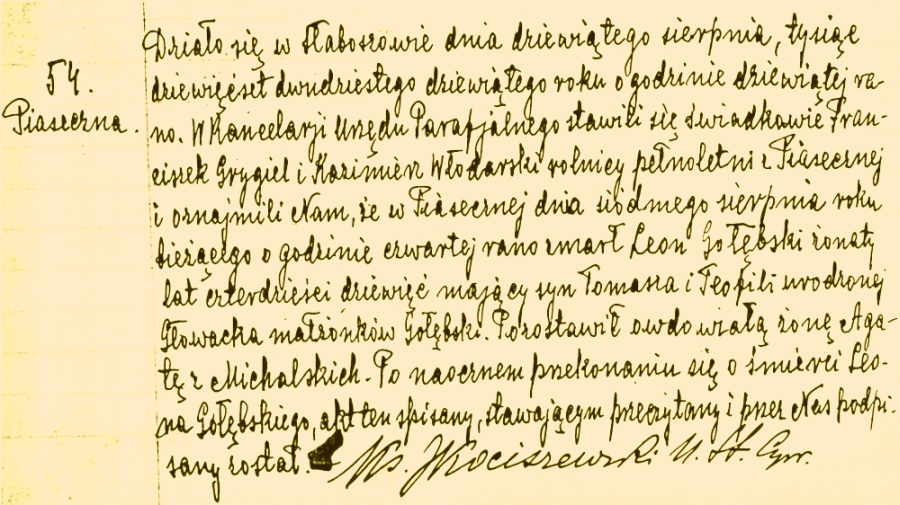 54.
Piaseczna.
Działo się w Słaboszowie dnia dziewiątego sierpnia, tysiąc
dziewięćset dwudziestego dziewiątego roku o godzinie dziewiątej ra-
no. W Kancelarji Urzędu Parafjalnego stawili się świadkowie Fran-
ciszek Grygiel i Kazimierz Włodarski rolnicy pełnoletni z Piasecznej
i oznajmili Nam, że w Piasecznej dnia siódmego sierpnia roku
bieżącego o godzinie czwartej rano zmarł Leon Gołębski żonaty
lat czterdzieści dziewięć mający syn Tomasza i Teofili urodzonej
Głowacka małżonków Gołębski. Pozostawił owdowiałą żonę Aga-
tę z Michalskich. Po naocznem przekonaniu się o śmierci Leo-
na Gołębskiego, akt ten spisany, stawającym przeczytany i przez Nas podpi-
sany został. Ks. JKociszewski U. St. Cyw.